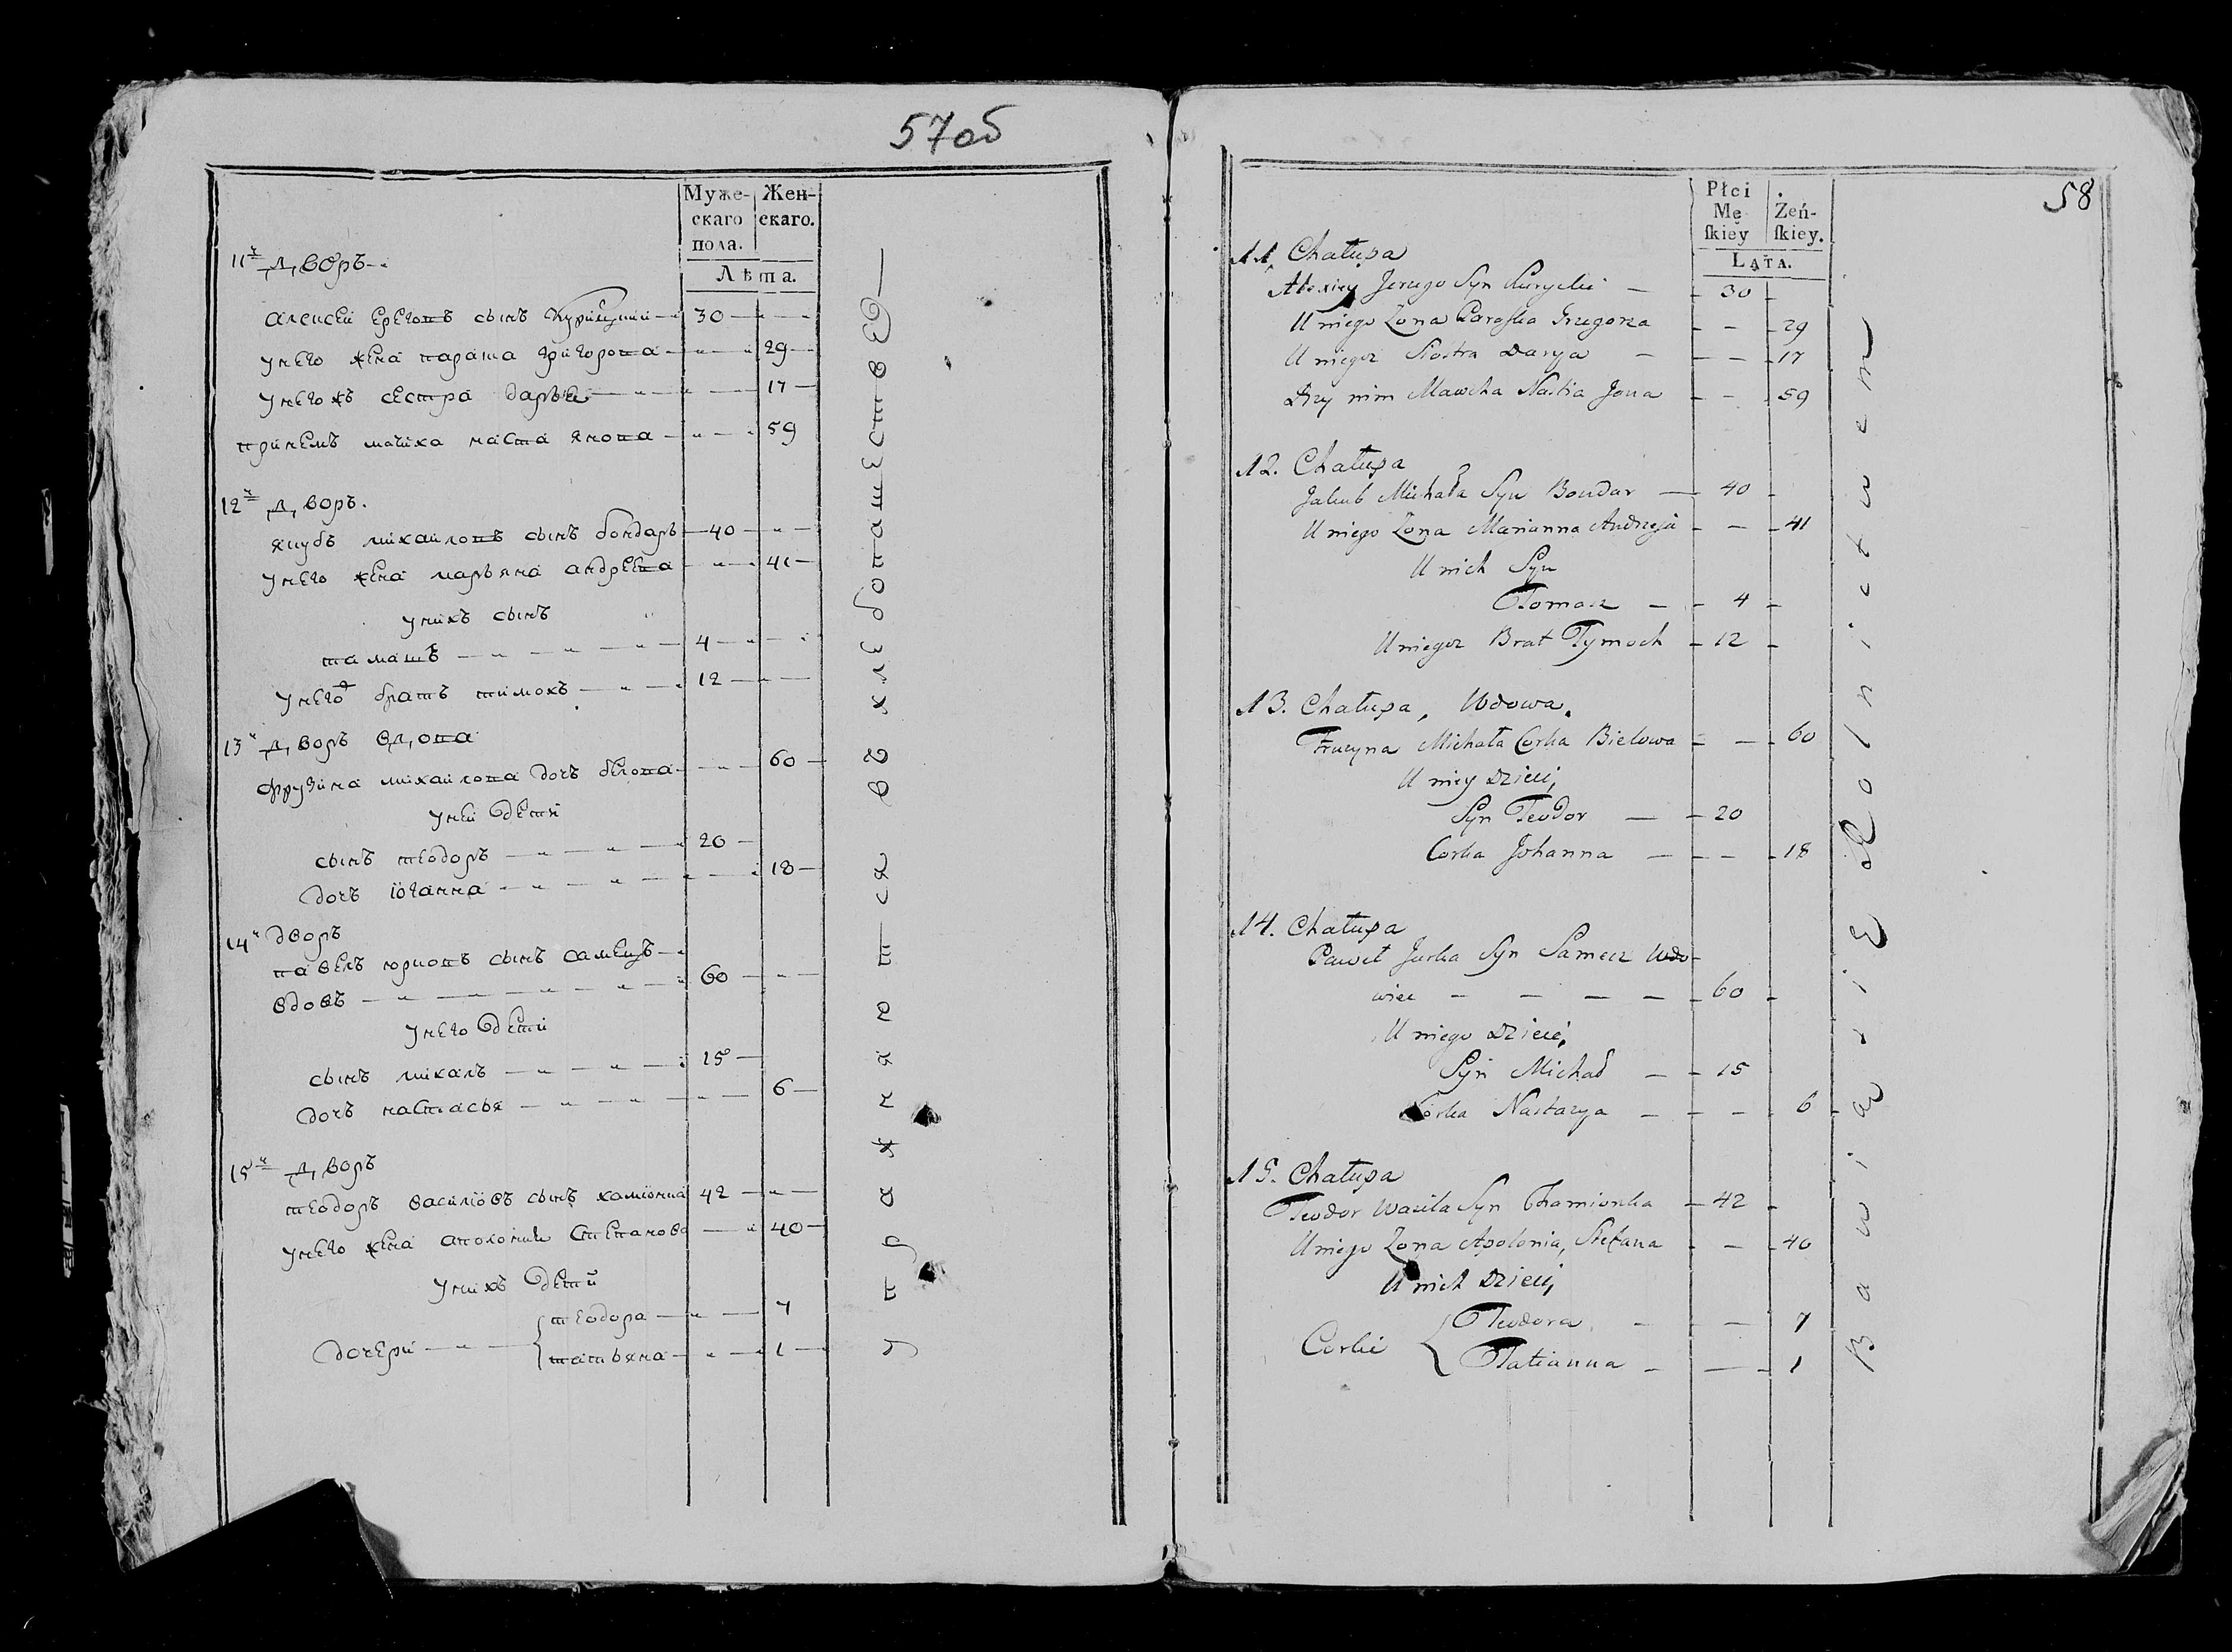 57об
Муже-
скаго
пола.
Жен-
скаго.
Лѣта.
11й дворъ
алексей ереговъ сынъ курицкий 30
унего жена параша григорова 29
унегожъ сестра дарья 17
принемъ мачиха наста янова 59
12й дворъ.
якубъ михайловъ сынъ бондаръ 40
унего жена марьяна андреева 41
унихъ сынъ
тамашъ 4
унегожъ братъ тимохъ 12
13й дворъ вдова
фрузина михайлова дочъ белова 60
уней дети
сынъ теодоръ 20
дочъ иоганна 18
14й дворъ
павелъ юрковъ сынъ самецъ
вдовъ 60
унего дети
сынъ михалъ 15
дочъ настасья 6
15й дворъ
теодоръ василиовъ сынъ хамионка 42
унего жена аполония степанова 40
унихъ дети
дочери
теодора 7
татьяна 1
хлебопашествѣ
58
Płci
Mę
skiey
Żeń-
skiey.
LATA.
11. Chałupa
Alexiey Jerzego Syn Kurycki 30
U niego Żona Paraska Grzegorza 29
U niegoż Siostra Darya 17
Przy nim Mawcha Nastia Jona 59
12. Chałupa
Jakub Michała Syn Bondar 40
U niego Żona Marianna Andrzeja 41
U nich Syn
Tomasz 4
U niegoż Brat Tymoch 12
13. Chałupa, Wdowa.
Fruzyna Michała Corka Bielowa 60
U niey Dzieci,
Syn Teodor 20
Corka Johanna 18
14. Chałupa
Paweł Jurka Syn Samecz Wdo-
wiec 60
U niego Dzieci,
Syn Michał 15
Corka Nastazya 6
15. Chałupa
Teodor Wasila Syn Chamionka 42
U niego Żona Apolonia, Stefana 40
U nich Dzieci,
Corki
Teodora 7
Tatianna 1
Bawią się Rolnictwem